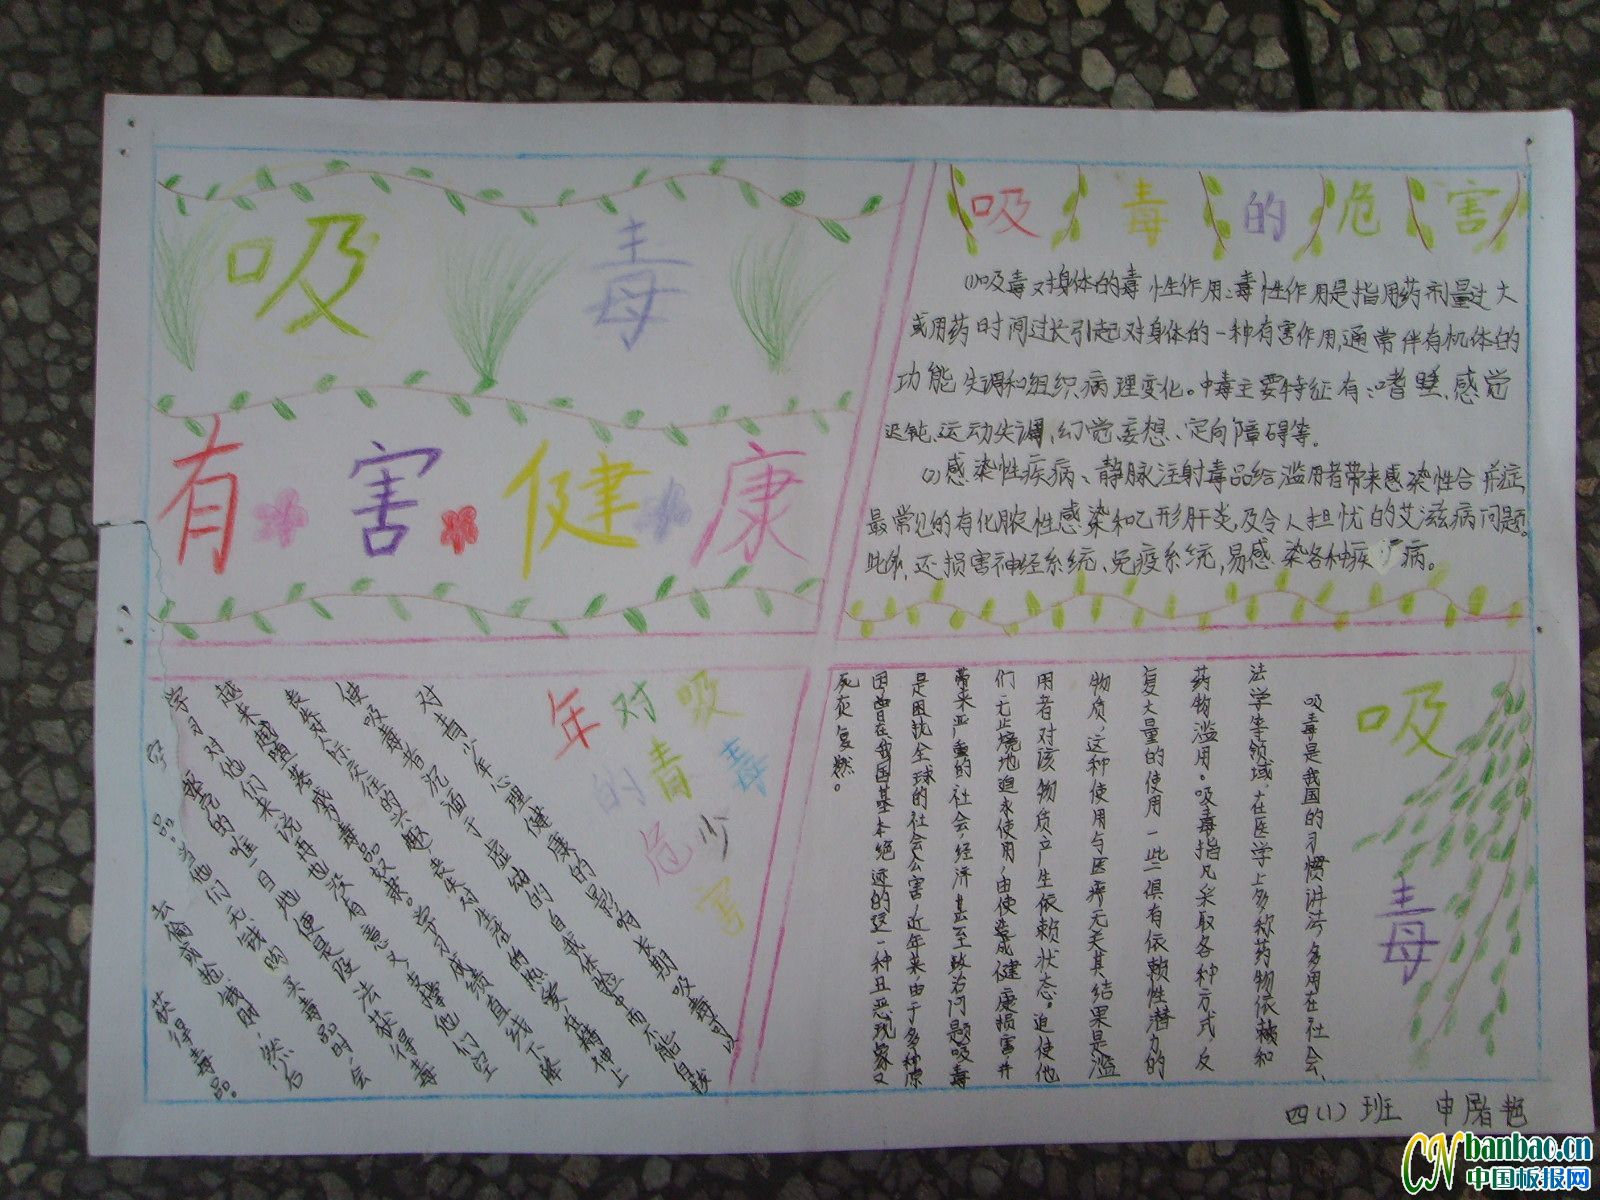 吸毒
有害健康
吸毒的危害
(1)吸毒对身体的毒性作用:毒性作用是指用药剂量过大
或用药时间过长引起对身体的一种有害作用,通常伴有机体的
功能失调和组织病理变化。中毒主要特征有:嗜睡、感觉
迟钝、运动失调、幻觉妄想、定向障碍等。
(2)感染性疾病、静脉注射毒品给滥用者带来感染性合并症
最常见的有化脓性感染和乙形肝炎,及令人担忧的艾滋病问题。
此外,还损害神经系统、免疫系统,易感染各种疾病。
吸毒
对青少
年的危害
对青少年心理健康的影响长期吸毒可以
使吸毒者沉湎于虚幻的自我体验中而不能自拔
丧失对人际交往的兴趣丧失对生活的热爱在精神上
越来越堕落成为毒品奴隶。学习成绩直线下降
学习对他们来说再也没有意义,支撑他们空
空躯壳的唯一目地便是设法获得毒
品。当他们无钱购买毒品时,会
去偷或抢钱财,然后
获得毒品。
吸毒
吸毒是我国的习惯讲法,多用在社会、
法学等领域,在医学上多称药物依赖和
药物滥用。吸毒指凡采取各种方式,反
复大量的使用一些俱有依赖性潜力的
物质,这种使用与医疗无关其结果是滥
用者对该物质产生依赖状态。迫使他
们无止境地追求使用,由使造成健康损害并
带来严重的社会、经济甚至政治问题吸毒
是困扰全球的社会公害,近年来由于多种原
因曾在我国基本绝迹的这一种丑恶现象又
死灰复燃。
四(1)班
CN banbao.cn
中国板报网